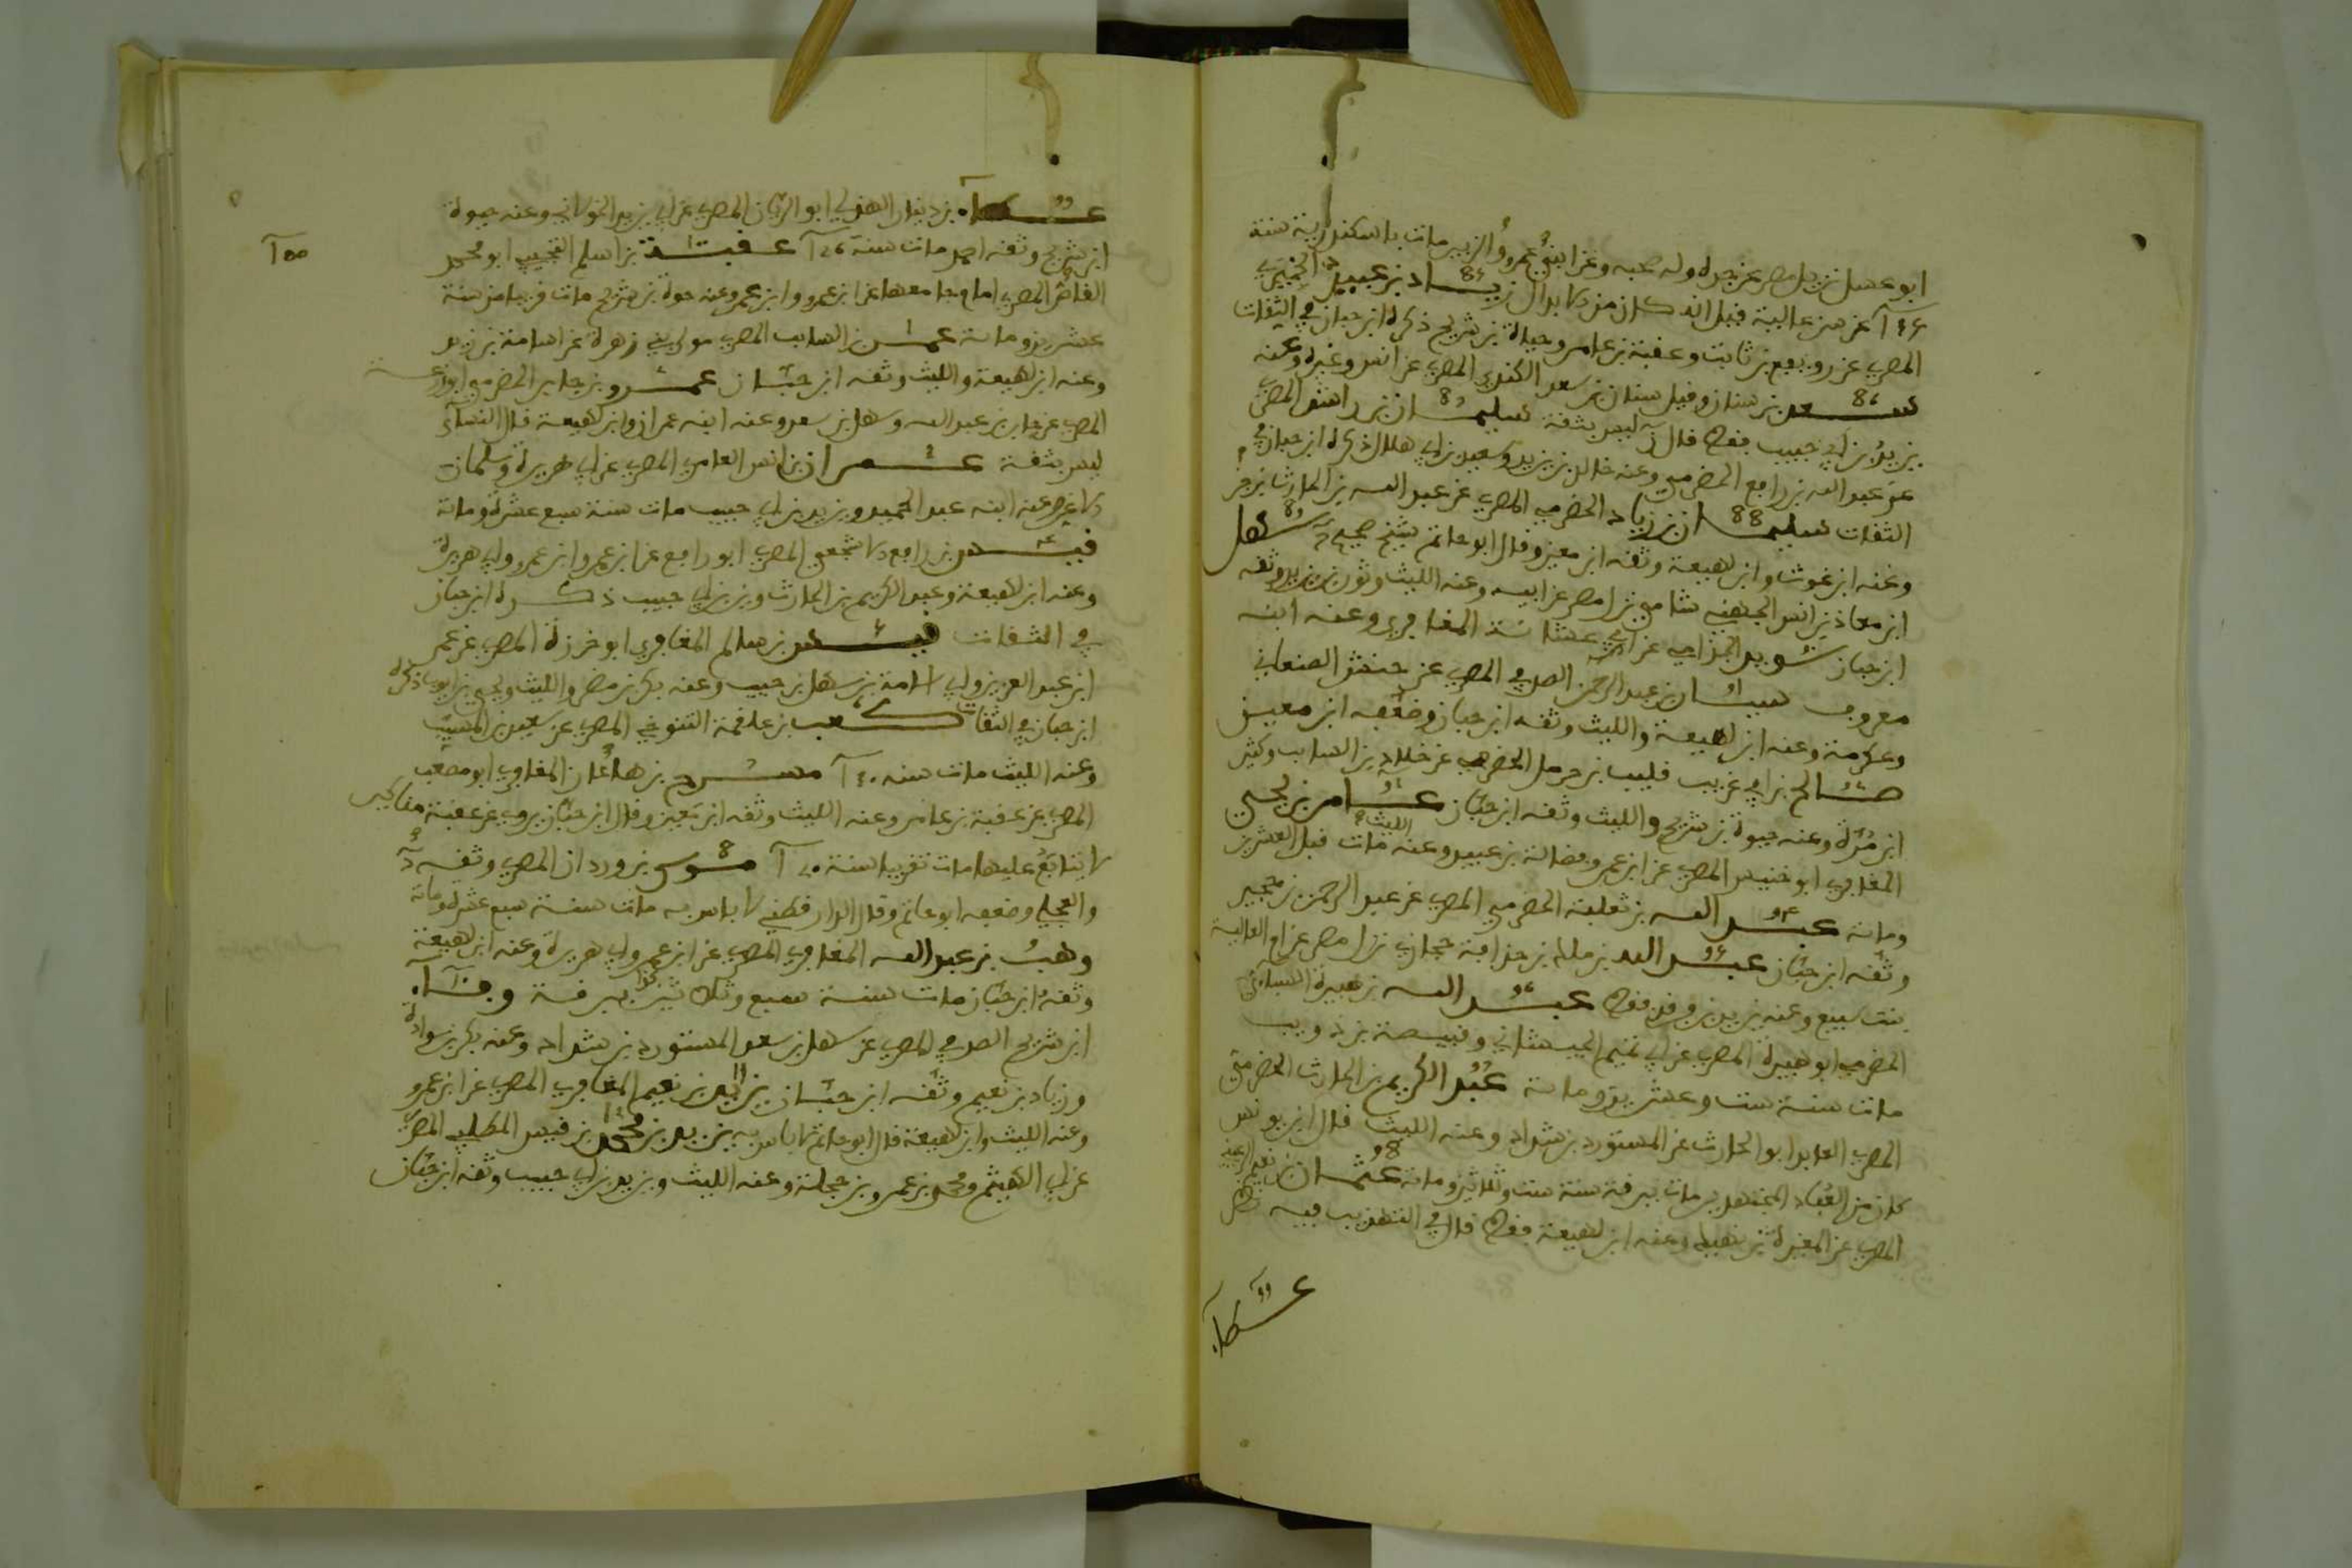 ابو عسل نزيل مصر عن جده وله صحبه وعن ابني عمرو والزبير مات باسكندرية سنة
عن سن عالية قبل انه كان من الابدال زياد بن عبيد الحميري
المصري عن رويفع بن ثابت وعقبة بن عامر وحياة بن شريح ذكره ابن حبان في الثقات
سعد بن سنان وقيل سنان بن سعد الكندي المصري عن انس وغيره وعنه
يزيد بن ابي حبيب فقط قال ن ليس بثقة سليمان بن راشد المصري
عن عبد الله بن رافع الحضرمي وعنه خالد بن يزيد وسعيد بن ابي هلال ذكره ابن حبان في
الثقات سليمان بن زياد الحضرمي المصري عن عبد الله بن الحارث بن جز
وعنه ابن غوث وابن لهيعة وثقه ابن معين وقال ابو حاتم شيخ صحيح سهل
ابن معاذ بن انس الجهني شامي نزل مصر عن ابيه وعنه الليث وثور بن يزيد وثقه
ابن حبان سويد الجذامي عن ابي عشانة المعافري وعنه ابنه
معروف سيار بن عبد الرحمن الصدفي المصري عن حنش الصنعاني
وعكرمة وعنه ابن لهيعة والليث وثقه ابن حبان وضعفه ابن معين
صالح بن ابي غريب قليب بن حرمل الحضرمي عن خلاد بن السايب وكثير
ابن مرة وعنه حيوة بن شريح والليث وثقه ابن حبان عامر بن يحيى
المعافري ابو خنيس المصري عن ابن عمر وفضالة بن عبيد وعنه الليث مات قبل العشرين
وماىة عبد الله بن ثعلبة الحضرمي المصري عن عبد الرحمن بن حجيرة
وثقه ابن حبان عبد الله بن مالك بن حذافة حجازي نزل مصر عن ام العالية
بنت سبيع وعنه بن فرقد فقط عبد الله بن هبيرة السبائي
الحضرمي ابو هبيرة المصري عن ابي تميم الجيشاني وقبيصة بن ذويب
مات سنة ست وعشرين وماىة عبد الكريم بن الحارث الحضرمي
المصري العابد ابو الحارث عن المستورد بن شداد وعنه الليث قال ابن يونس
كان من العباد المجتهدين مات ببرقة سنة ست وثلاثين وماىة عثمان بن نعيم الرعيني
المصري عن المغيرة بن نهيك وعنه ابن لهيعة فقط قال في التهذيب فيه نظر
عطاء
عطاء بن دينار الهذلي ابو الريان المصري عن ابي يزيد الخولاني وعنه حيوة
ابن شريح وثقه احمد مات سنة عقبة بن اسلم التجيبي ابو محمد
القاص المصري امام جامعها عن ابن عمرو وابن عمر وعنه حيوة بن شريح مات قريبا من سنة
عشرين وماىة عمر بن السايب المصري مولى بني زهرة عن اسامة بن زيد
وعنه ابن لهيعة والليث وثقه ابن حبان عمرو بن جابر الحضرمي ابو زرعة
المصري عن جابر بن عبد الله وسهل بن سعد وعنه ابنه عمران وابن لهيعة قال النساىي
ليس بثقة عمران بن انس العامري المصري عن ابي هريرة وسلمان
الاغر وعنه ابنه عبد الحميد ويزيد بن ابي حبيب مات سنة سبع عشرة وماىة
قيس بن رافع الاشجعي المصري ابو رافع عن ابن عمر وابن عمرو وابي هريرة
وعنه ابن لهيعة وعبد الكريم بن الحارث ويزيد بن ابي حبيب ذكره ابن حبان
في الثقات قيس بن سالم المعافري ابو خرزة المصري عن عمر
ابن عبد العزيز وابي امامة بن سهل بن حنيف وعنه بكر بن مضر والليث ويحيى بن ايوب ذكره
ابن حبان في الثقات كعب بن علقمة التنوخي المصري عن سعيد بن المسيب
وعنه الليث مات سنه مشرح بن هاعان المعافري ابو مصعب
المصري عن عقبة بن عامر وعنه الليث وثقه ابن معين وقال ابن حبان يروي عن عقبة مناكير
لا يتابع عليها مات تقريبا سنة موسى بن وردان المصري وثقه د
والعجلي وضعفه ابو حاتم وقال الدارقطني لا باس به مات سنة سبع عشرة وماىة
وهب بن عبد الله المعافري المصري عن ابن عمرو وابي هريرة وعنه ابن لهيعة
وثقه ابن حبان مات سنة سبع وثلاثين كذا ببرقة وفاء
ابن شريح الصدفي المصري عن سهل بن سعد المستورد بن شداد وعنه بكر بن سوادة
وزياد بن نعيم وثقه ابن حبان يزيد بن نعيم المعافري المصري عن ابن عمرو
وعنه الليث وابن لهيعة قال ابو حاتم لا باس به يزيد بن محمد بن قيس المطلبي المصري
عن ابي الهيثم ومحمد بن عمرو بن حلحلة وعنه الليث ويزيد بن ابي حبيب وثقه ابن حبان